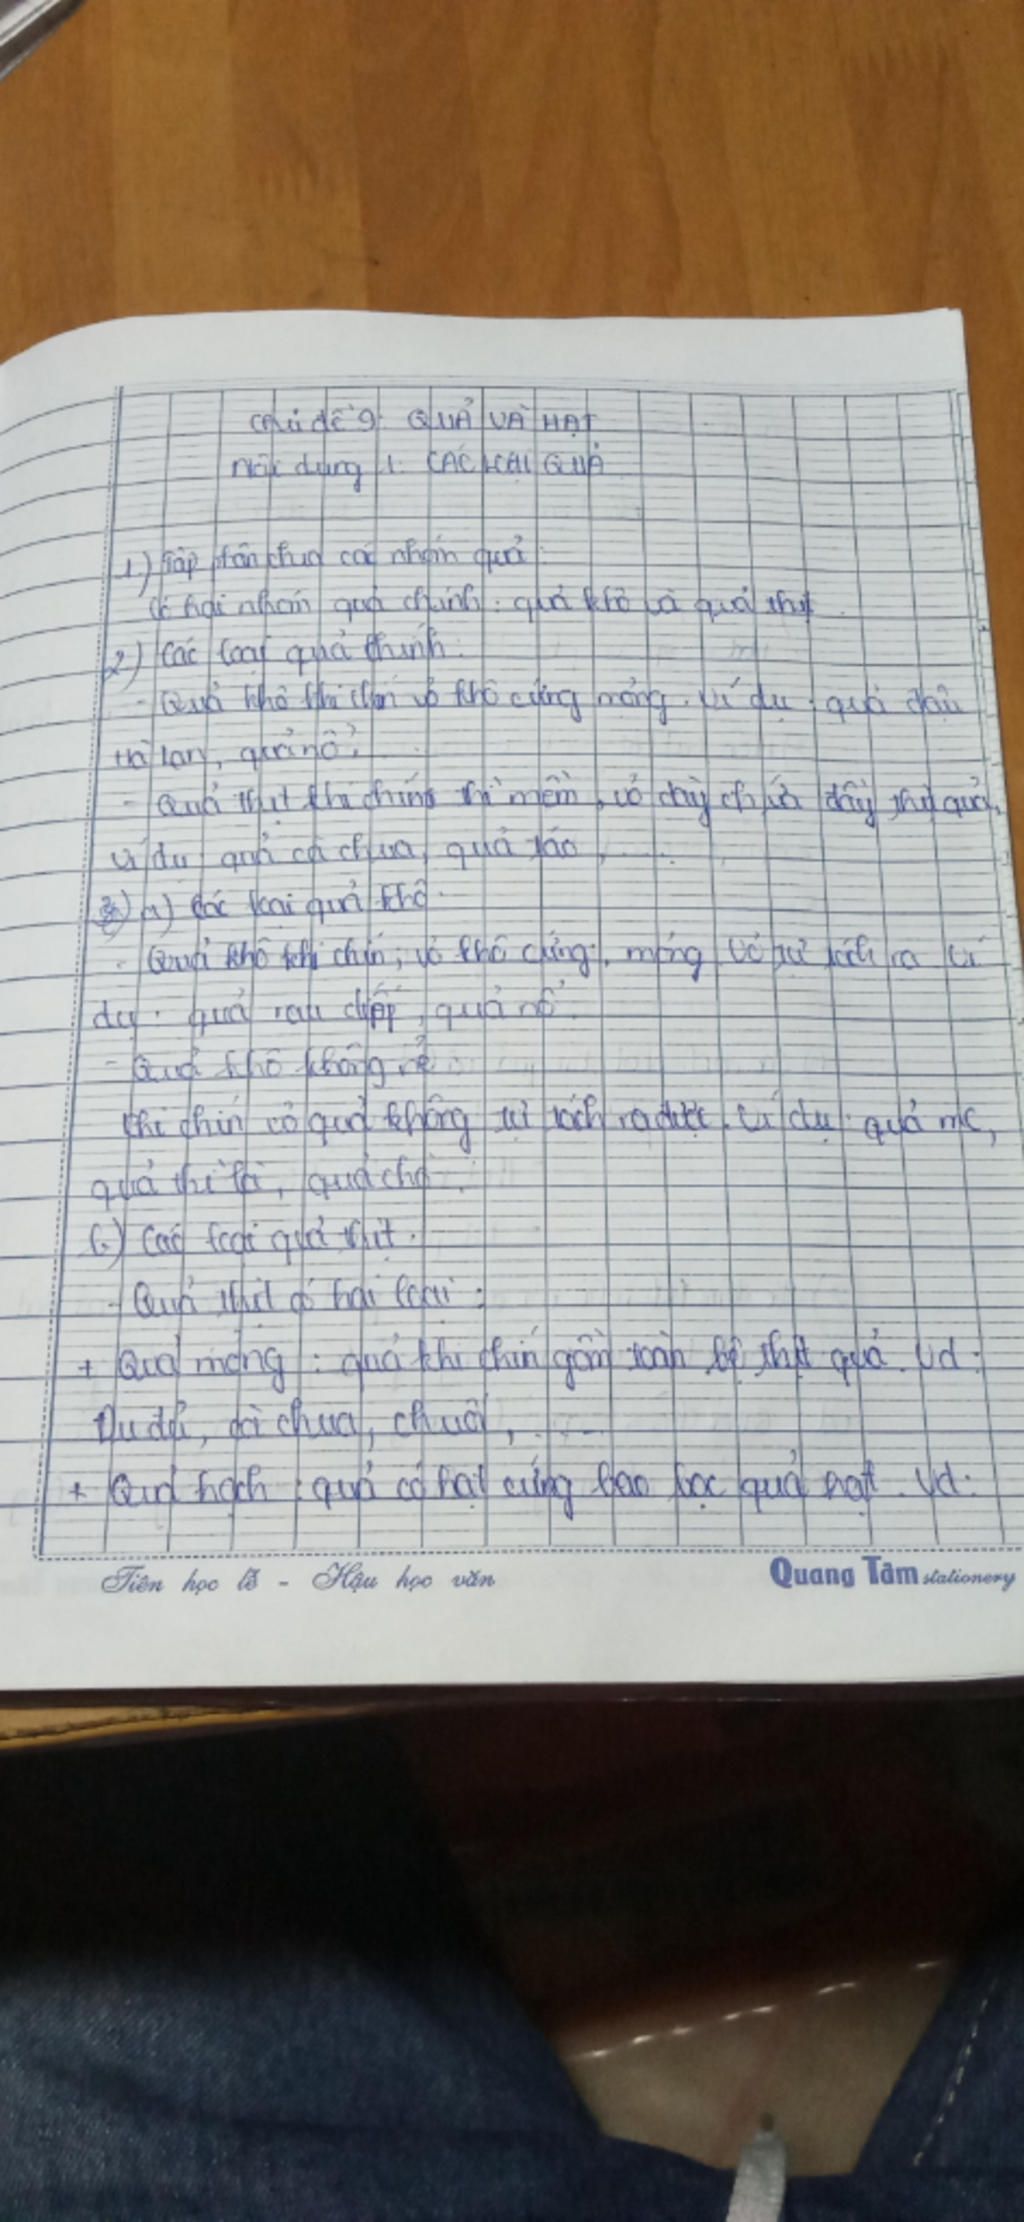 Chủ đề 9: QUẢ VÀ HẠT
Nội dung 1. CÁC LOẠI QUẢ
1.) Tập phân chia các nhóm quả:
Có hai nhóm quả chính: quả khô và quả thịt.
2.) Các loại quả chính:
- Quả khô khi chín vỏ khô cứng mỏng. Ví dụ: quả đậu
Hà lan, quả nổ.
- Quả thịt khi chín thì mềm, vỏ dày chứa đầy thịt quả,
ví dụ: quả cà chua, quả táo, ...
a) Các loại quả khô.
- Quả khô khi chín, vỏ khô cứng, mỏng vỏ tự tách ra ví
dụ: quả cải, quả nổ.
- Quả khô không nẻ.
Khi chín vỏ quả không tự tách ra được. Ví dụ: quả me,
quả thì là, quả chò.
b) Các loại quả thịt.
- Quả thịt có hai loại:
+ Quả mọng: quả khi chín gồm toàn bộ thịt quả. Vd:
Đu đủ, cà chua, chuối, ...
+ Quả hạch: quả có hạt cứng bao bọc quả hạt. Vd:
Tiên học lễ - Hậu học văn
Quang Tâm stationery